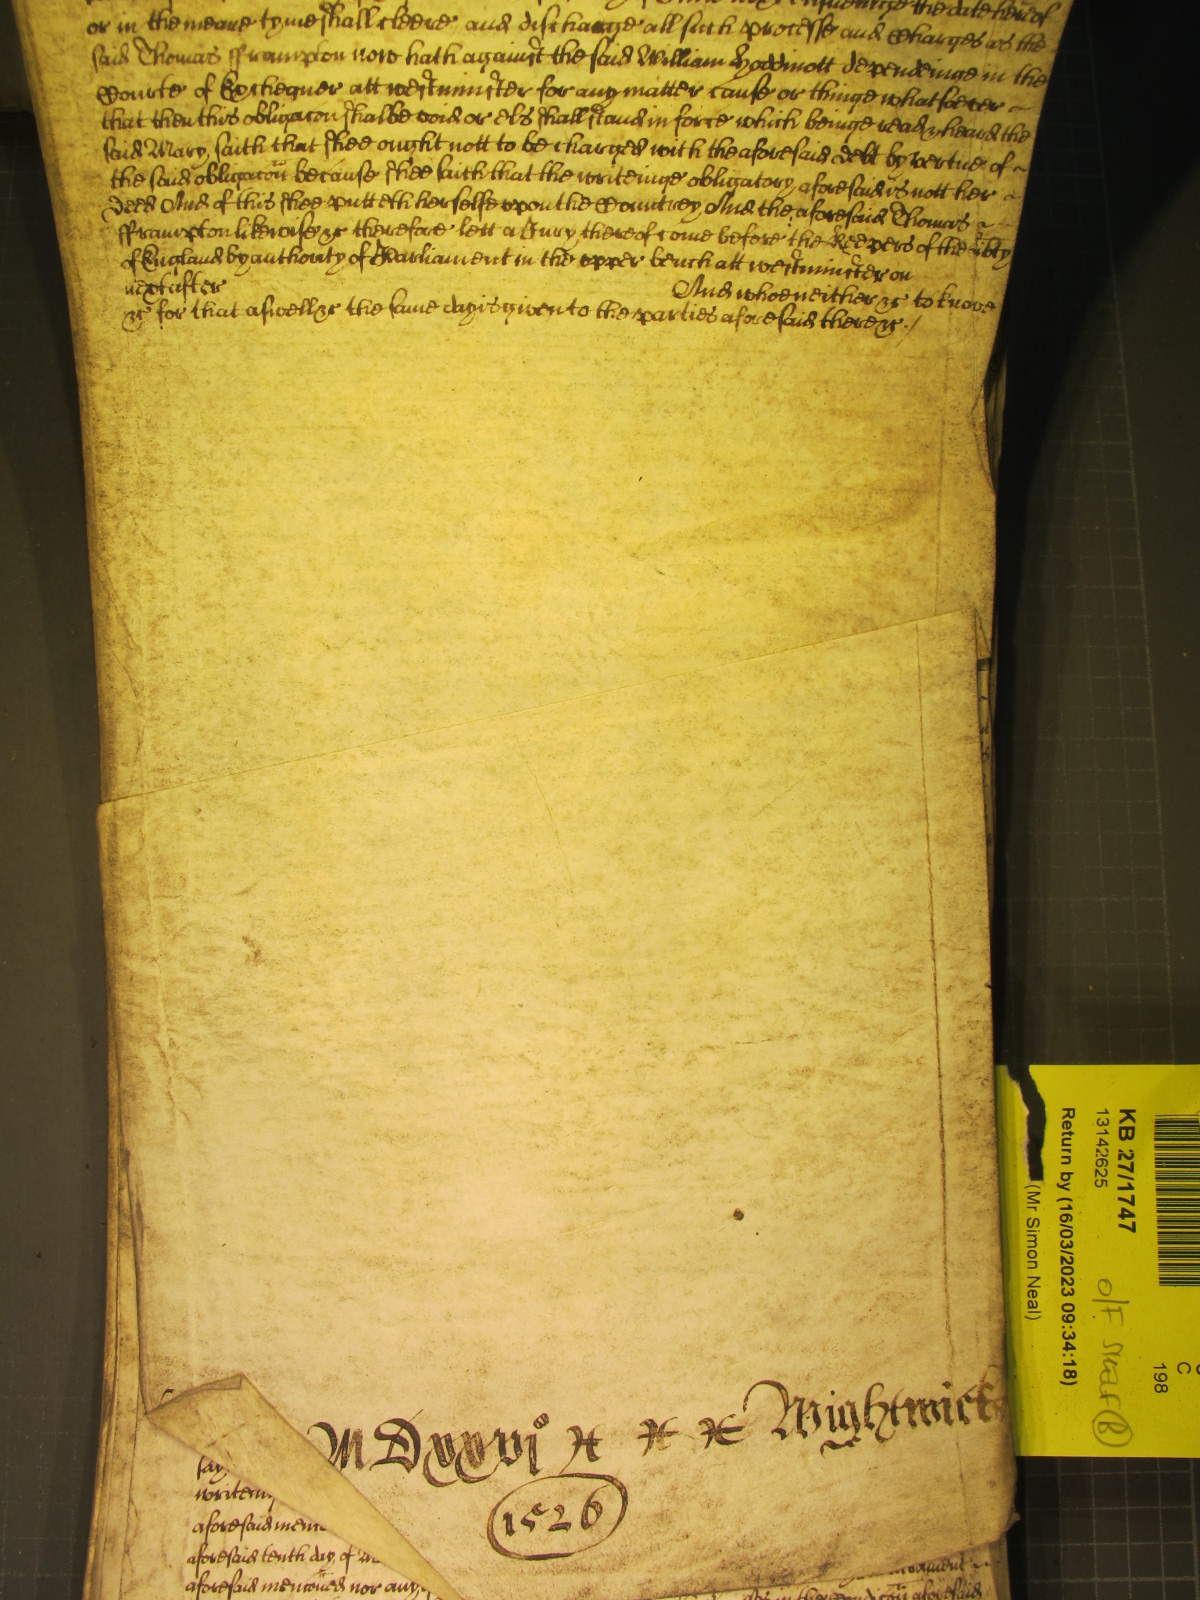 the date hereof
or in the meane tyme shall cleere and discharge all such processe and Charges as the
said Thomas Frampton now hath against the said William Hoddinott dependeinge in the
Courte of Exchequer att westminster for any matter cause or thinge whatsoever
that then this obligacon shalbe void or els shall stand in force which beinge read & heard the
said Mary, saith that shee ought nott to be charged with the aforesaid debt by vertue of
the said obligacon because shee saith that the writeinge obligatory aforesaid is nott her
deed And of this shee putteth herselfe upon the Countrey And the aforesaid Thomas
Frampton likewise &c therefore lett a Jury thereof come before the Keepers of the liberty
of England by authority of Parliament in the upper bench att westminster on
next after And whoe neither &c to knowe
&c for that aswell &c the same day is given to the parties aforesaid there &c.
MDxxvi
Wightwick
1526
say
writein
aforesaid men
aforesaid tenth day of
aforesaid menconed nor any
aforesaid
KB 27/1747
13142625
Return by (16/03/2023 09:34:18)
(Mr Simon Neal)
198
C